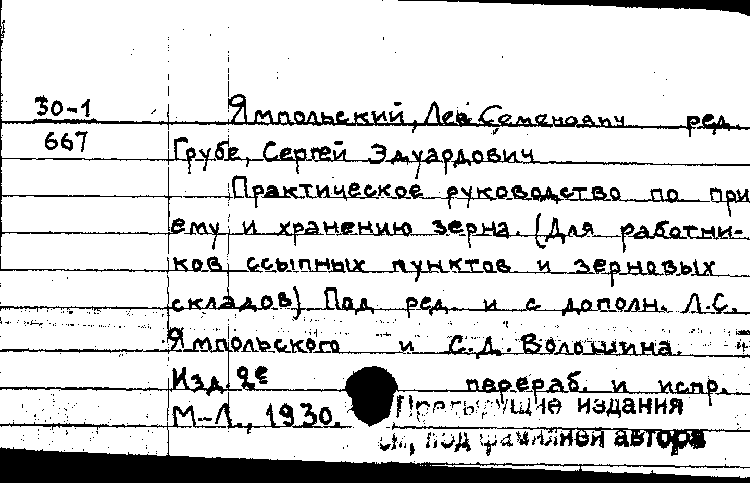 30-1 Ямпольский, Лев Семенович ред.
667 Грубе, Сергей Эдуардович
Практическое руководство по при
ему и хранению зерна. (Для работни-
ков ссыпных пунктов и зерновых
складов) Под ред. и с дополн. Л.С.
Ямпольского и С.Д. Волошина.
Изд. 2е перераб. и испр.
М-Л., 1930. Предыдущие издания
см, под фамилией автора